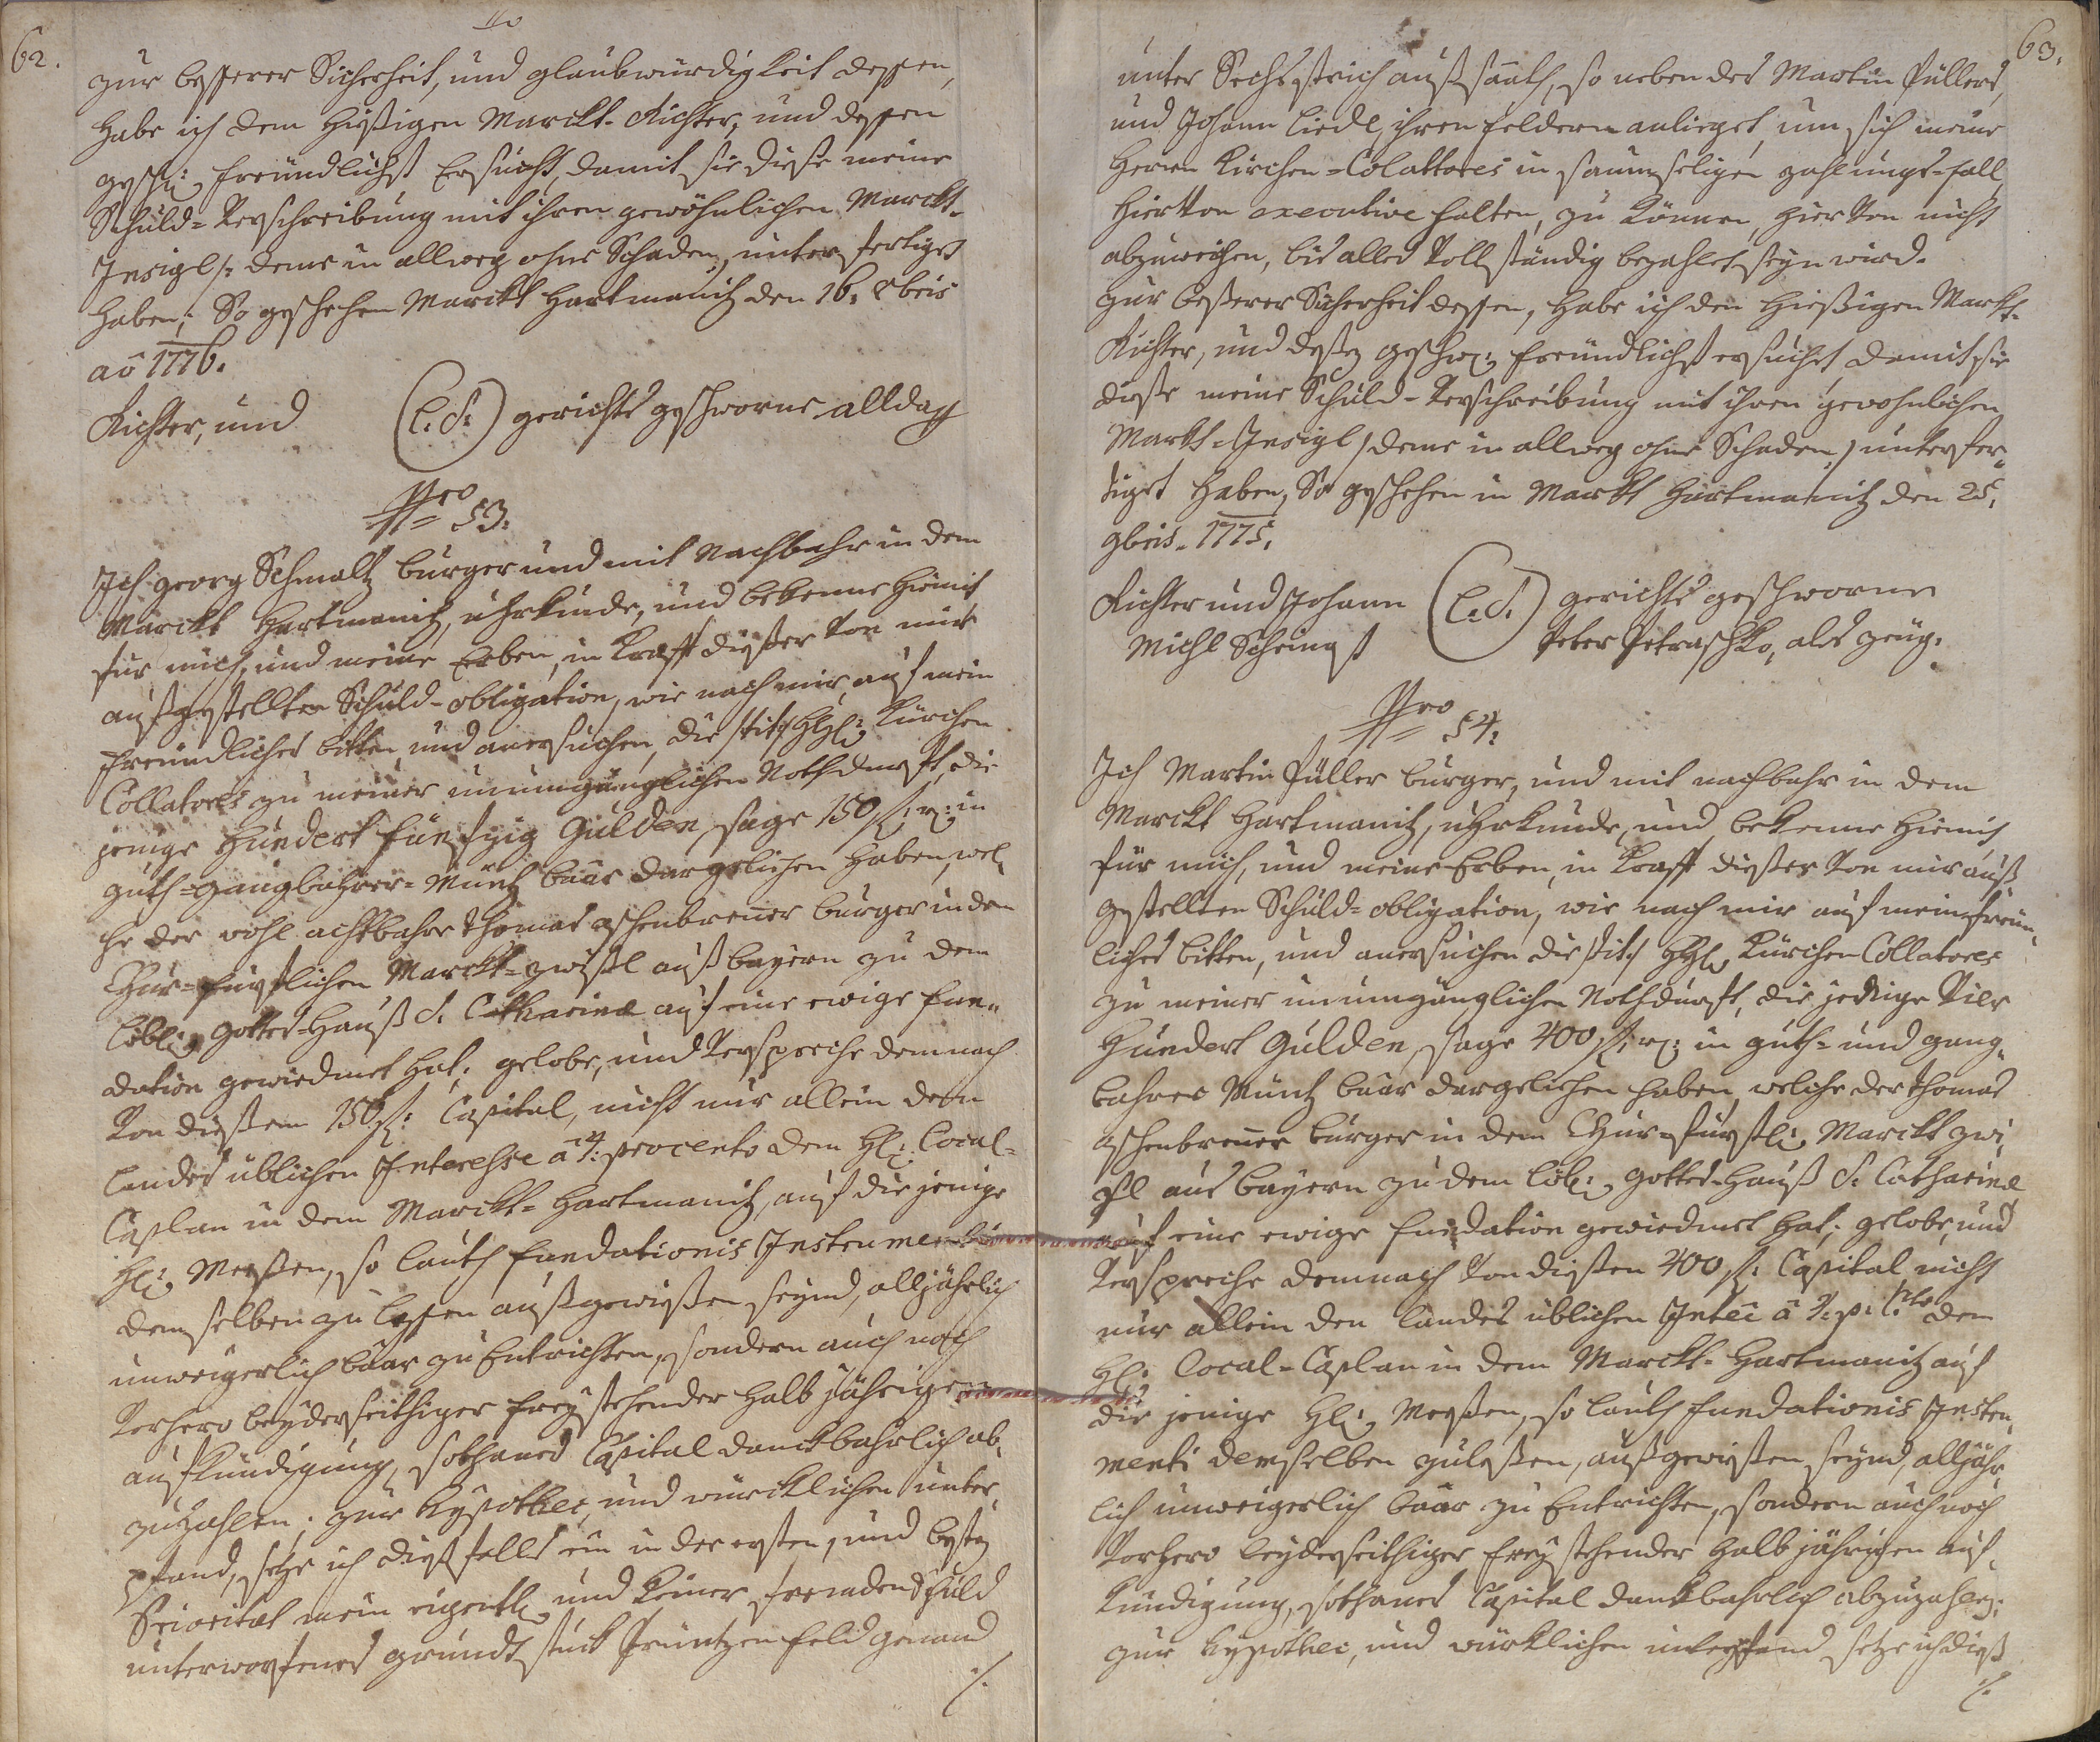 62.
zur besserer Sicherheit, und glaubwürdigkeit dessen,
habe ich dem hießigen Marckt-Richter, und dessen
geschw: freündlichst Ersucht, damit sie diese meine
Schuld-Verschreibung mit ihren gewöhnlichen Marckt-
Insigl /: deme in allweg ohne Schaden, unterfertiget
haben; So geschehen Marckt Hartmanitz den 16: 8bris
aõ 1776.
Richter, und (L:S:) gerichts geschworne allda
Nro 53:
Ich Georg Schmaltz burger und mit Nachbahr in dem
Marckt Hartmanitz, uhrkunde, und bekenne hiemit
für mich, und meine Erben, in Krafft dießer von mir
außgestellten Schuld-obligation, wie nach mir, auf mein
freündliches bitten und anersuchen, die /:tit:/ HH: Kürchen
Collatores zu meiner unumgänglichen Nothdurft, die
jenige Hundert fünfzig Gulden, sage 150 fl: r: in
guth-gangbahrer-Müntz baar dargeliehen haben, wel
che der wohl achtbahre Thomas aschenbrener burger in dem
Chur-fürstlichen Marckt-Zwißl auß bayern zu dem
löbl: Gottes-Hauß S: Catharinæ auf eine ewige fun-
dation gewiedmet hat; gelobe, und Verspreche demnach
Von dießem 150 fl: Capital, nicht nur allein den
landes üblichen Interesse â 4: procento dem H: Local-
Caplan in dem Marckt-Hartmanitz, auf die jenige
Hl: Messen, so lauth fundationis Instrumenti
demselben zu lesen außgewießen seynd, alljährlich
unweigerlich baar zu Entrichten, sondern auch nach
Vorhero beyderseithiger freystehender halb jährigen
aufkündigung, sothanes Capital danckbahrlich ab
zuzahlen; zur hypothec, und würcklichen unter
pfand, setze ich dießfalls ein in der ersten, und besten
Priorität mein eigenth: und keiner fremden Schuld
unterworfenes grundstuck Prüntzen feld genand
./.
63.
unter Sechs strich außsaath, so neben des Martin Füllers,
und Johann Liedl, ihren feldern anlieget, um sich meine
Herrn Kirchen-Colattores in saumseligen zahlungs-fall
hiervon executive halten, zu können, hier Von nicht
abzuweichen, bis alles Vollständig bezahlet seyn wird.
zur beßerer Sicherheit dessen, habe ich den hießigen Markt-
Richter, und deßen geschw: freündlichst ersuchet damit sie
diese meine Schuld-Verschreibung mit ihren gewohnlichen
Markt-Insigl /deme in allweg ohne Schaden,/ unterfer-
tiget haben, So geschehen in Markt Hartmanitz den 25:
9bris. 1775.
Richter und Johann (L:S:) gerichts geschworne
Michl Peter Petraschko, als zeug.
Nro 54:
Ich Martin Füller burger, und mit nachbahr in dem
Marckt Hartmanitz, uhrkunde, und bekenne hiemit
für mich, und meine Erben, in Krafft dießer von mir auß
gestellten Schuld-obligation, wie nach mir auf mein freün
liches bitten, und anersuchen die /:tit:/ HH: Kürchen Collatores
zu meiner unumgänglichen Nothdurft, die jenige Vier
Hundert Gulden, sage 400 fl: r: in guth- und gang
bahrer Müntz baar dargeliehen haben, welche der Thomas
aschenbrener burger in dem Chur-fürstl: Marckt Zwi
ßl aus bayern zu dem löb: Gottes-Hauß S: Catharinæ
auf eine ewige fundation gewiedmet hat; gelobe, und
Verspreche demnach Von dießen 400 fl: Capital nicht
nur allein den landes üblichen Inteê â 4: p: Cto dem
H: Local-Caplan in dem Marckt-Hartmanitz auf
die jenige Hl: Messen, so lauth fundationis Instru
menti demselben zuleßen, außgewießen seynd, alljähr
lich unweigerlich baar zu Entrichten, sondern auch noch
Vorhero beyderseithiger freystehender halb jährigen auf
kündigung, sothanes Capital dankbahrlich abzuzahlen;
zur hypothec, und würklichen unterpfand setze ich dieß
./.